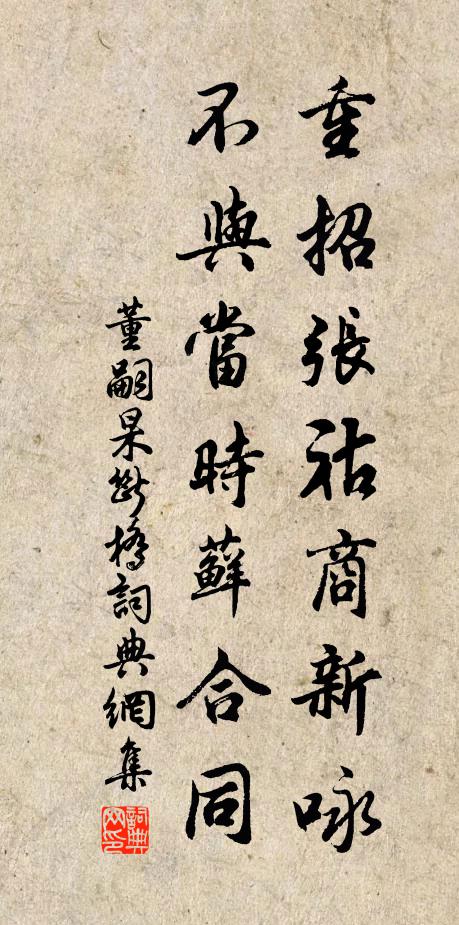 重招張祜商新咏
不與當時蘚合同
董嗣杲斷橋詞典網集
詞典网印